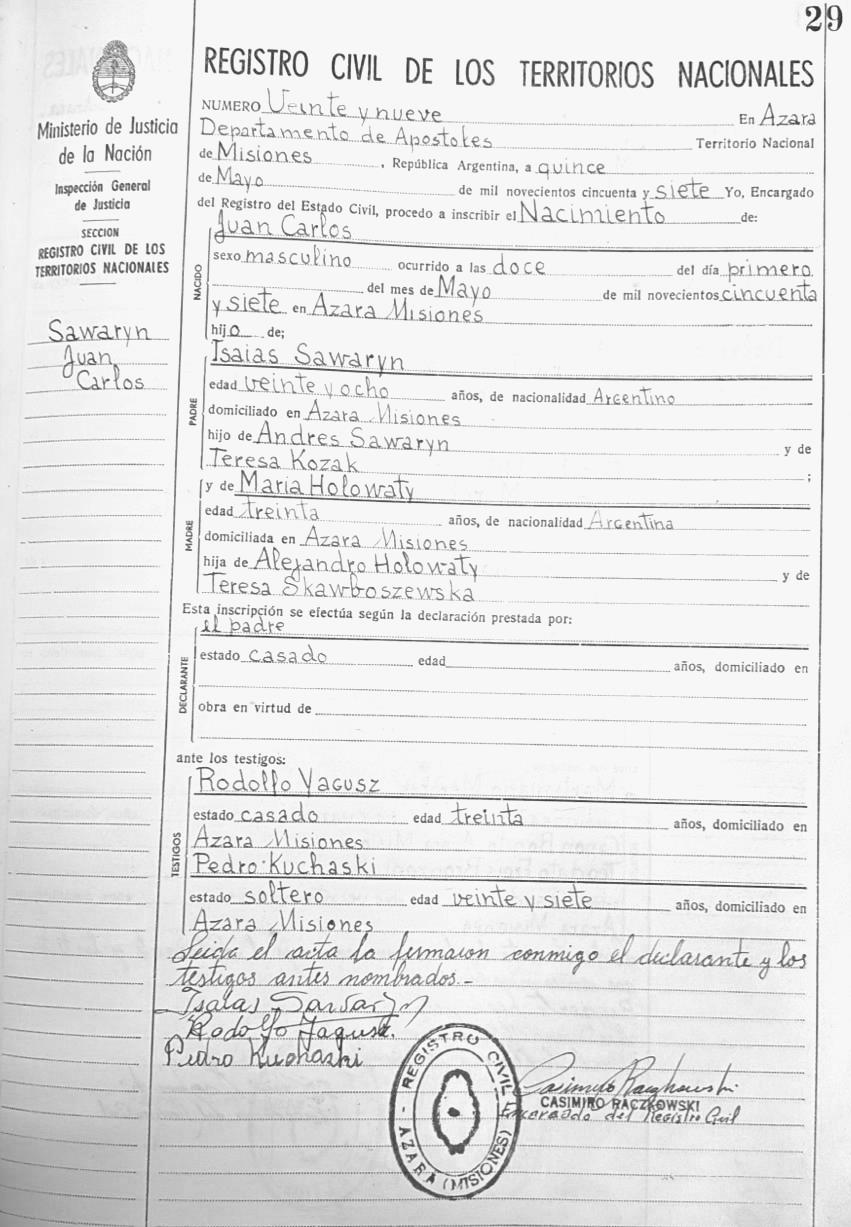 29
Ministerio de Justicia
de la Nación
Inspección General
de Justicia
SECCION
REGISTRO CIVIL DE LOS
TERRITORIOS NACIONALES
Sawaryn
Juan
Carlos
REGISTRO CIVIL DE LOS TERRITORIOS NACIONALES
NUMERO Veinte y nueve En Azara
Departamento de Apostoles Territorio Nacional
de Misiones, República Argentina, a quince
de Mayo de mil novecientos cincuenta y siete Yo, Encargado
del Registro del Estado Civil, procedo a inscribir el Nacimiento de:
NACIDO
Juan Carlos
sexo masculino ocurrido a las doce del día primero
del mes de Mayo de mil novecientos cincuenta
y siete en Azara Misiones
hijo de;
PADRE
Isaias Sawaryn
edad veinte y ocho años, de nacionalidad Argentino
domiciliado en Azara Misiones
hijo de Andres Sawaryn y de
Teresa Kozak ;
MADRE
y de Maria Holowaty
edad treinta años, de nacionalidad Argentina
domiciliada en Azara Misiones
hija de Alejandro Holowaty y de
Teresa Skawboszewska
Esta inscripción se efectúa según la declaración prestada por:
DECLARANTE
el padre
estado casado edad años, domiciliado en
obra en virtud de
ante los testigos:
TESTIGOS
Rodolfo Yagusz
estado casado edad treinta años, domiciliado en
Azara Misiones
Pedro Kuchaski
estado soltero edad veinte y siete años, domiciliado en
Azara Misiones
Leida el acta la firmaron conmigo el declarante y los
testigos antes nombrados.-
Isaias Sawaryn
Rodolfo Jagusz.
Pedro Kuchaski
REGISTRO CIVIL
AZARA (MISIONES)
Casimiro Raczkowski
CASIMIRO RACZKOWSKI
Encargado del Registro Civil